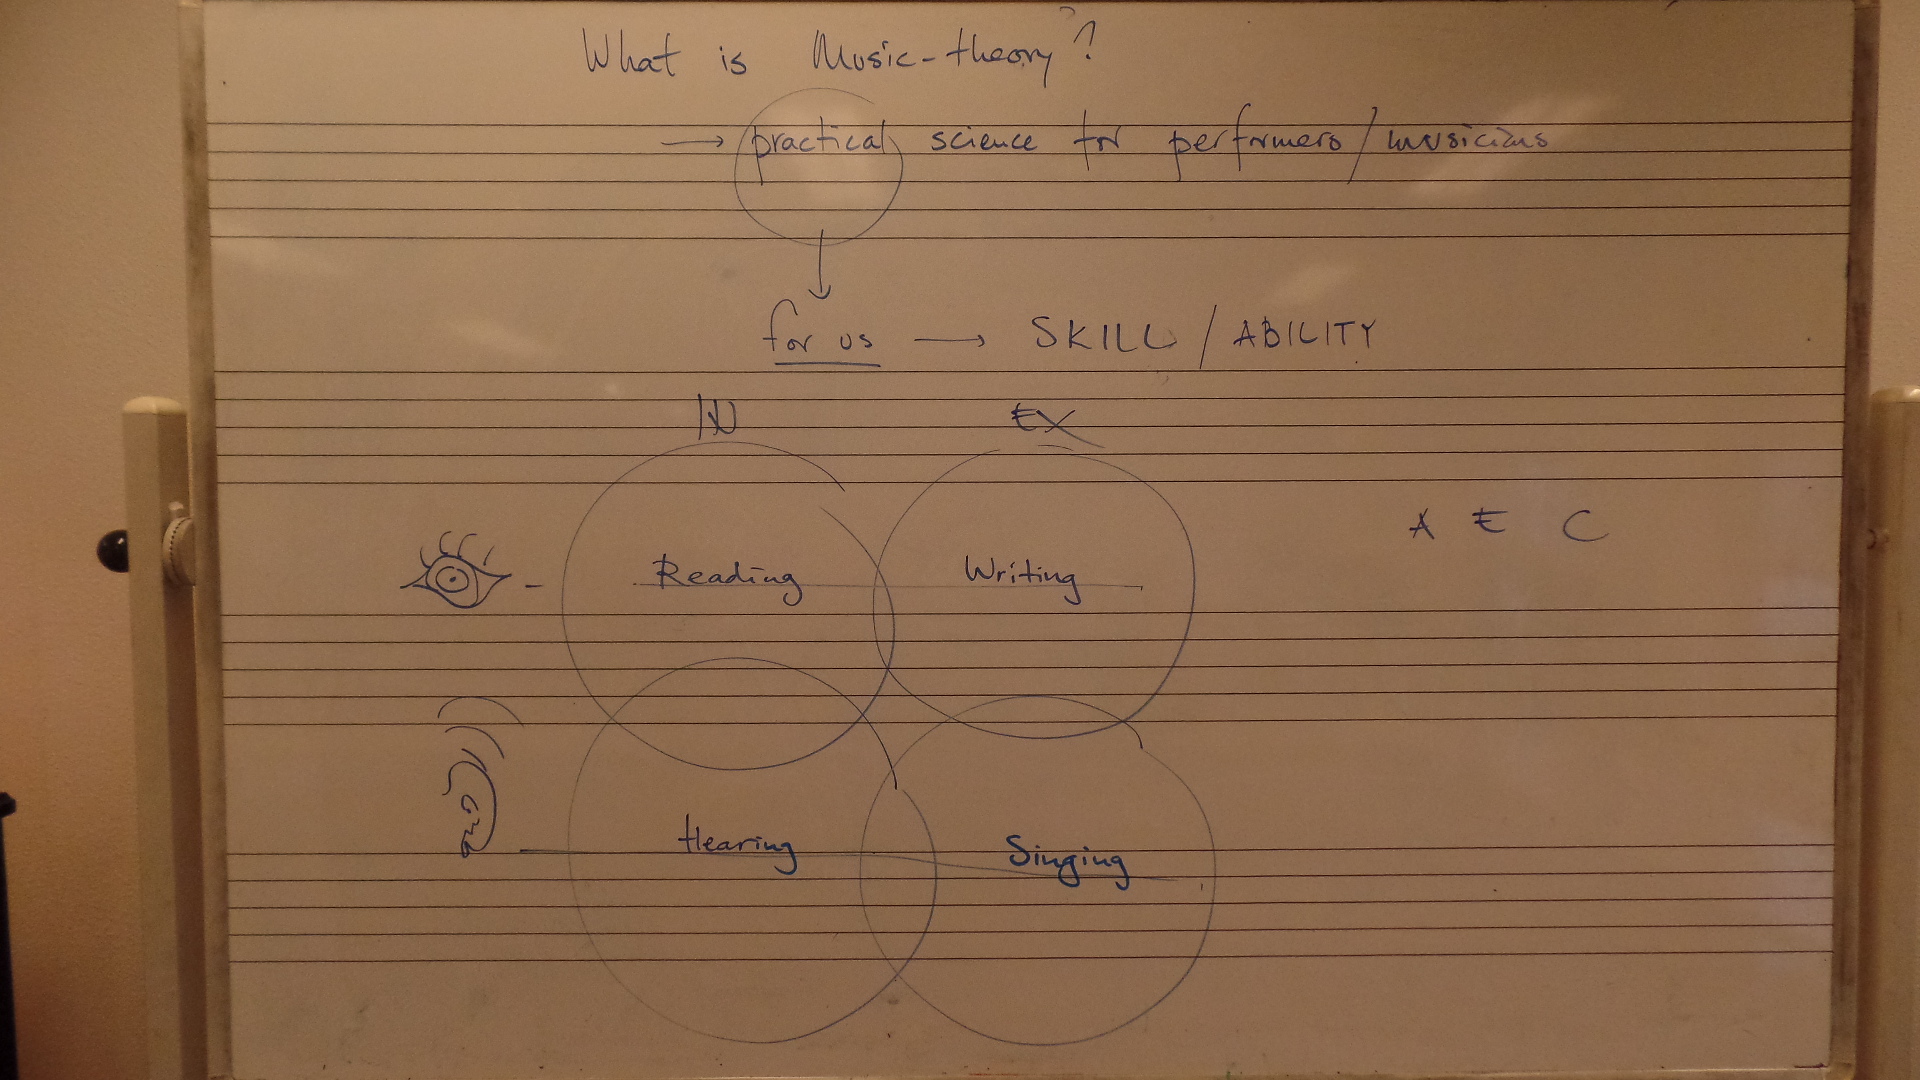 What is Music-theory?
→ practical science for performers/musicians
for us → SKILL / ABILITY
IN EX
A E C
Reading Writing
Hearing Singing